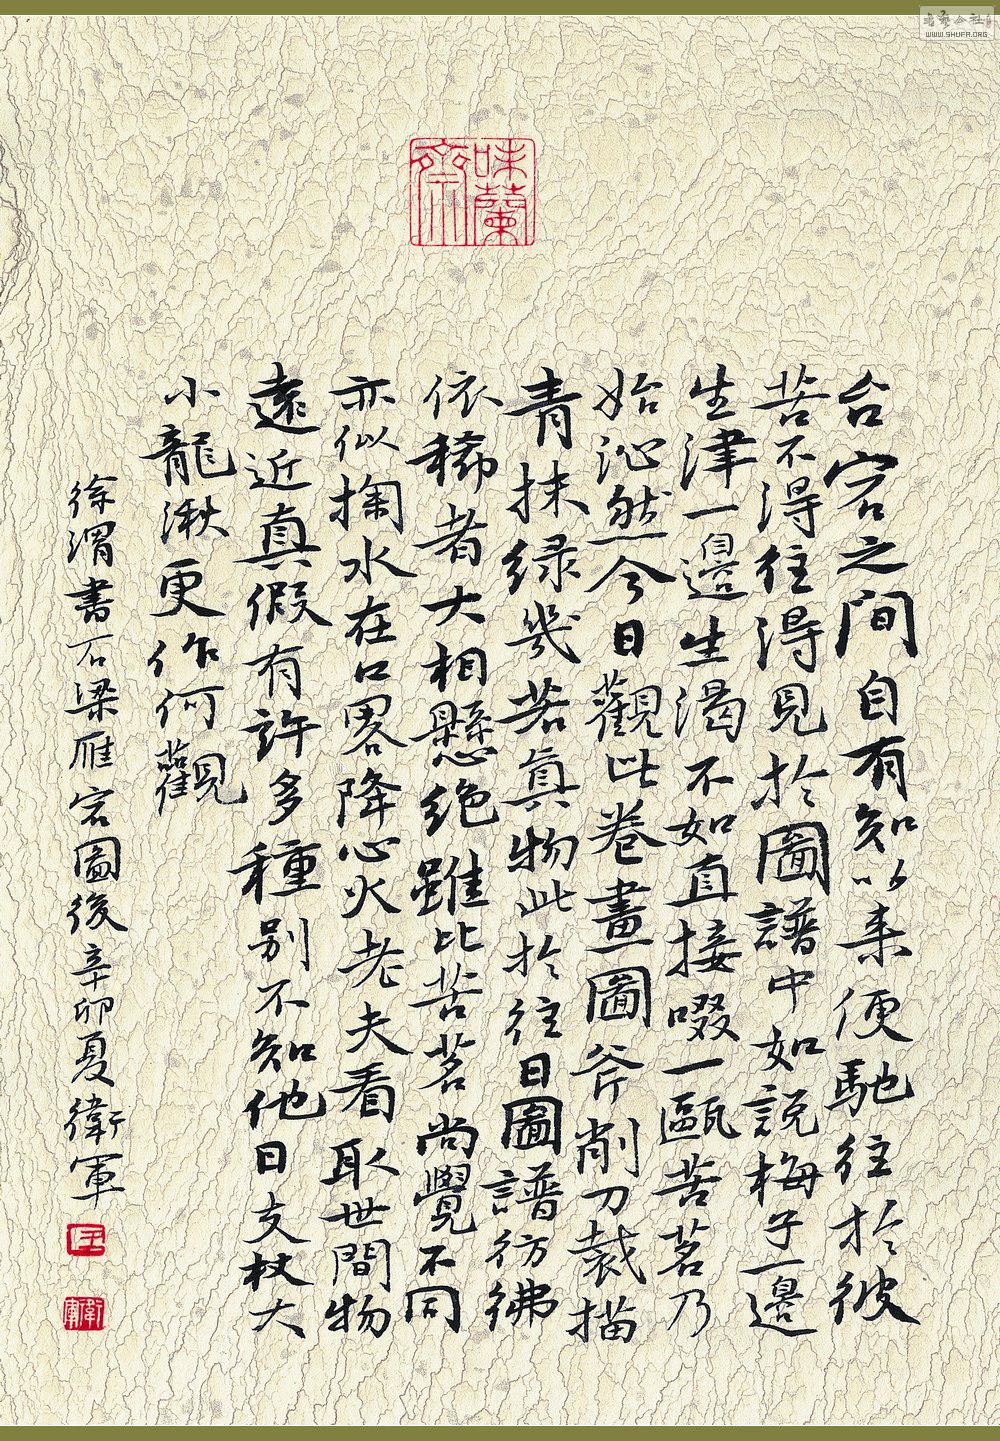 味蘭齋
台宕之間自有知以来便馳往於彼
苦不得往得見於圖譜中如說梅子一邊
生津一邊生渴不如直接啜一甌苦茗乃
始沁然今日觀此卷畫圖斧削刀裁描
青抹绿幾若真物此於往日圖譜彷彿
依稀者大相懸絶雖比苦茗尚覺不同
亦似掬水在口畧降心火老夫看取世間物
遠近真假有許多種别不知他日支杖大
小龍湫更作何觀
徐渭書石梁雁宕圖後辛卯夏衛軍
衛軍
WWW.SHUFA.ORG